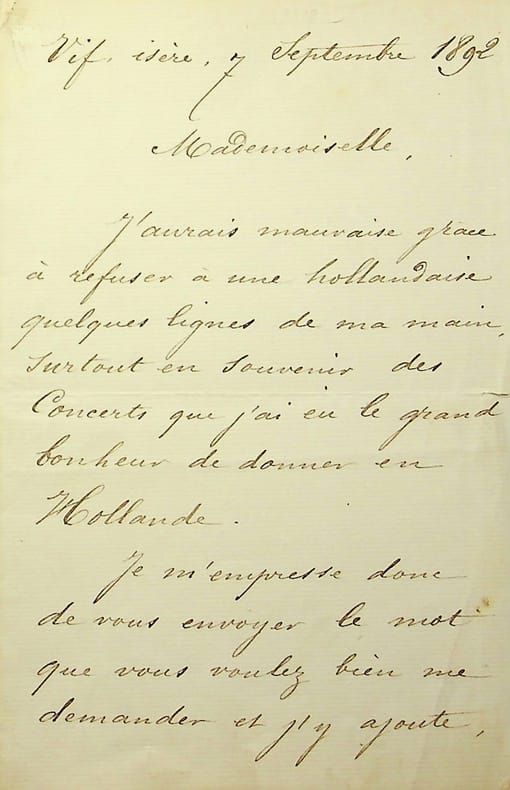 Vif, isère, 7 Septembre 1892
Mademoiselle,
J'aurais mauvaise grâce
à refuser à une hollandaise
quelques lignes de ma main,
surtout en souvenir des
Concerts que j'ai eu le grand
bonheur de donner en
Hollande.
Je m'empresse donc
de vous envoyer le mot
que vous voulez bien me
demander et j'y ajoute,